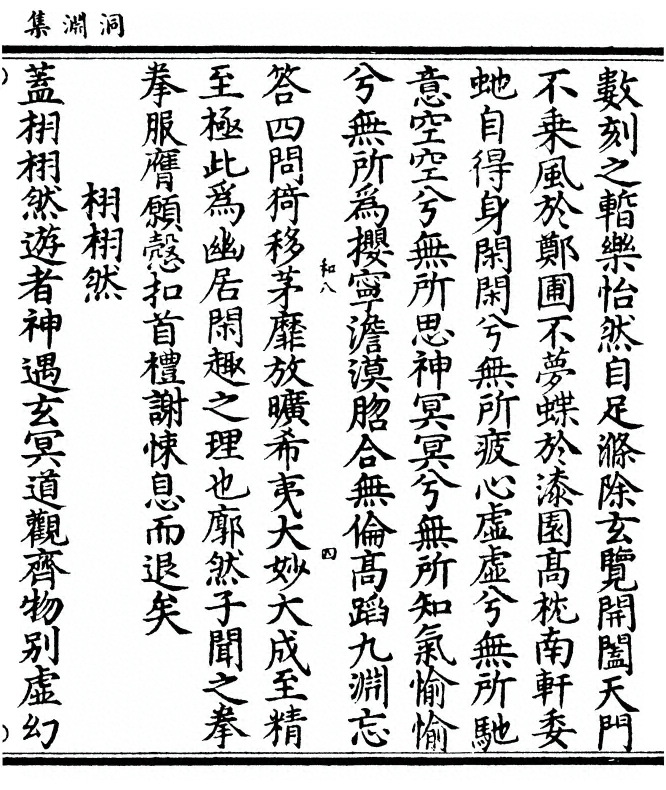 洞淵集
數刻之暫樂怡然自足滌除玄覽開闔天門
不乗風於鄭圃不夢蝶於漆園髙枕南軒委
虵自得身閑閑兮無所疲心虛虛兮無所馳
意空空兮無所思神冥冥兮無所知氣愉愉
兮無所爲攖寧澹漠脗合無倫髙蹈九淵忘
和八
四
答四問猗移茅靡放曠希夷大妙大成至精
至極此爲幽居閑趣之理也廓然子聞之拳
拳服膺願慤扣首禮謝悚息而退矣
栩栩然
蓋栩栩然遊者神遇玄冥道觀齊物别虛幻